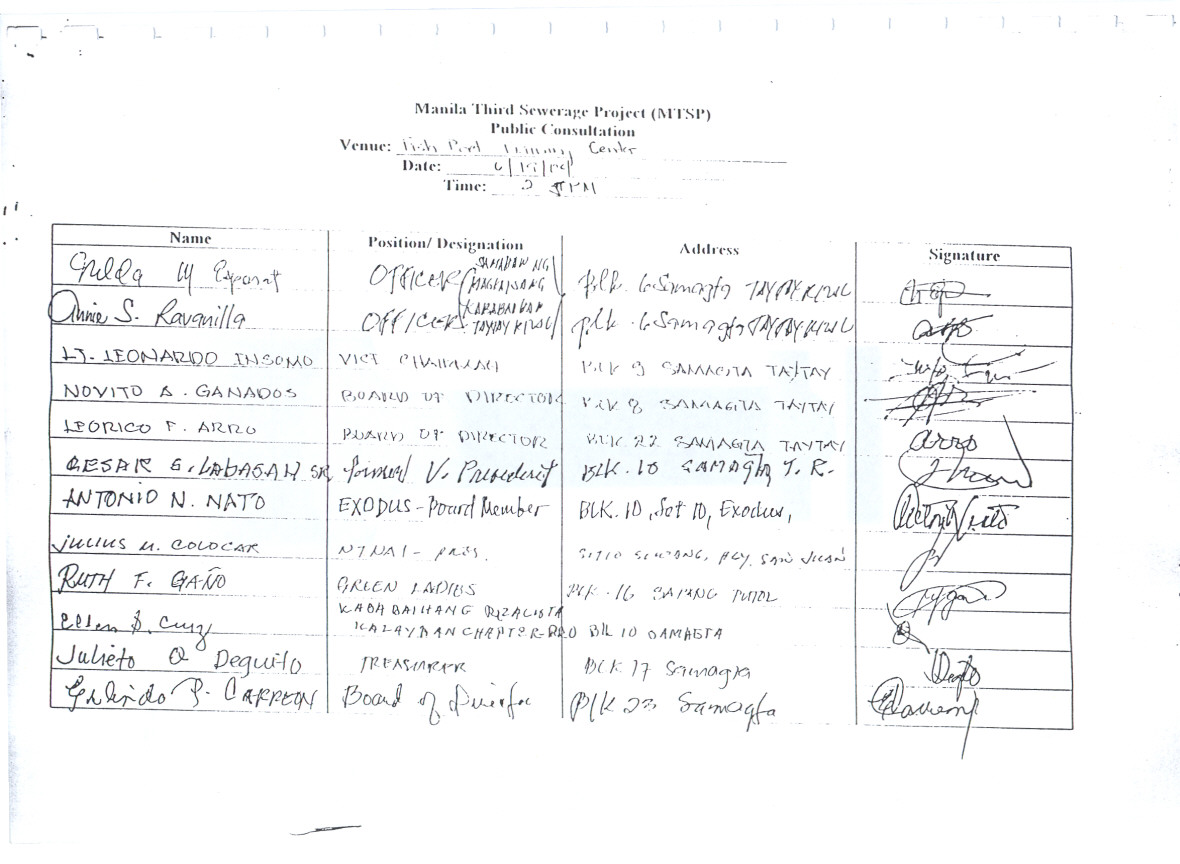 Manila Third Sewerage Project (MTSP)
Public Consultation
Venue: Center
Date:
Time: 2
Name Position/ Designation Address Signature
OFFICER SAMAHAN NG Blk. 6 Samagta TAYTAY RIZAL
Annie S. Ravanilla OFFICER TAYTAY RIZAL Blk. 6 Samagta TAYTAY RIZAL
LT. LEONARDO INSOMO VICE CHAIRMAN BLK 9 SAMAGTA TAYTAY
NOVITO B. GANADOS BOARD OF DIRECTOR BLK 8 SAMAGTA TAYTAY
LEORICO F. ARRO BOARD OF DIRECTOR BLK 22 SAMAGTA TAYTAY Arro
CESAR G. LABASAN SR. V. President BLK. 10 SAMAGTA T. R.
ANTONIO N. NATO EXODUS - Board Member BLK. 10, Lot 10, Exodus,
JULIUS M. COLOCAR PRES. SITIO BGY. SAN JUAN
RUTH F. GAÑO GREEN LADIES BLK. 16
Ellen B. Cruz KABABAIHANG RIZALISTA
KALAYAAN CHAPTER-PRO BLK 10 SAMAGTA
Julieto Q Deguito TREASURER BLK 17 Samagta
P. CARREON Board of Blk 23 Samagta